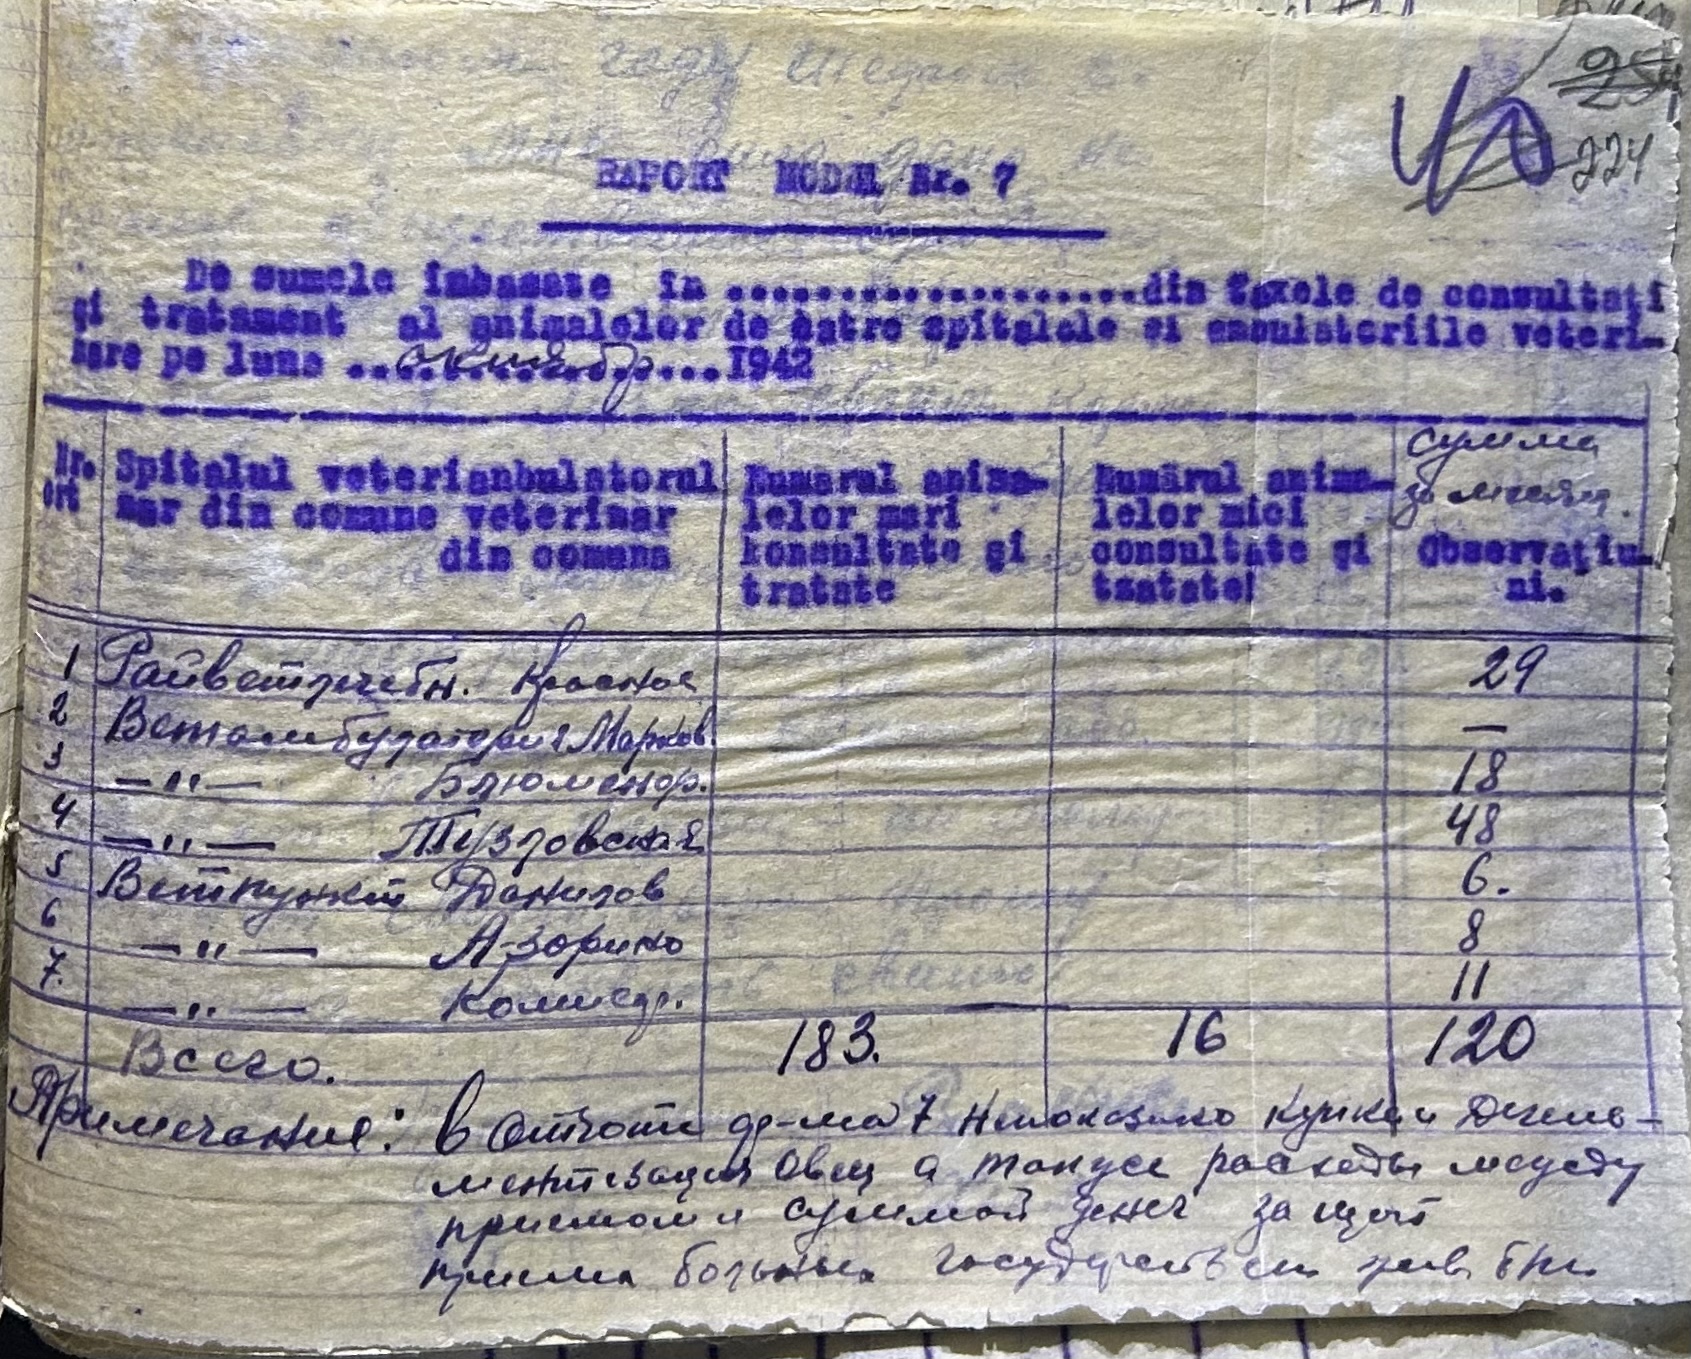 224
RAPORT MODEL Nr. 7
De sumele imbasate în ....................din taxele de consultați
și tratament al animalelor de catre spitalele si ambulatoriile veteri-
nare pe luna ..октябр...1942
Nr. ort
Spitalul veterianbulatorul
nar din comune veterinar
din comuna
Numarul anima-
lelor mari
konsultate și
tratate
Numărul anima-
lelor mici
consultate și
taatate!
сумма
за месяц.
Observațiu-
ni.
1 Райветлечебн. Красное 29
2 Ветамбулатория Марков —
3 —„— Блюменф. 18
4 —„— Тузловская 48
5 Ветпункт Данилов 6.
6 —„— А-зорино 8
7. —„— Комисар. 11
Всего. 183. 16 120
Примечание: в отчоти фр-ма 7 непоказано купка и дегель-
ментизация овец а также расходы между
приемом и суммой денег за щот
приема больных государствен